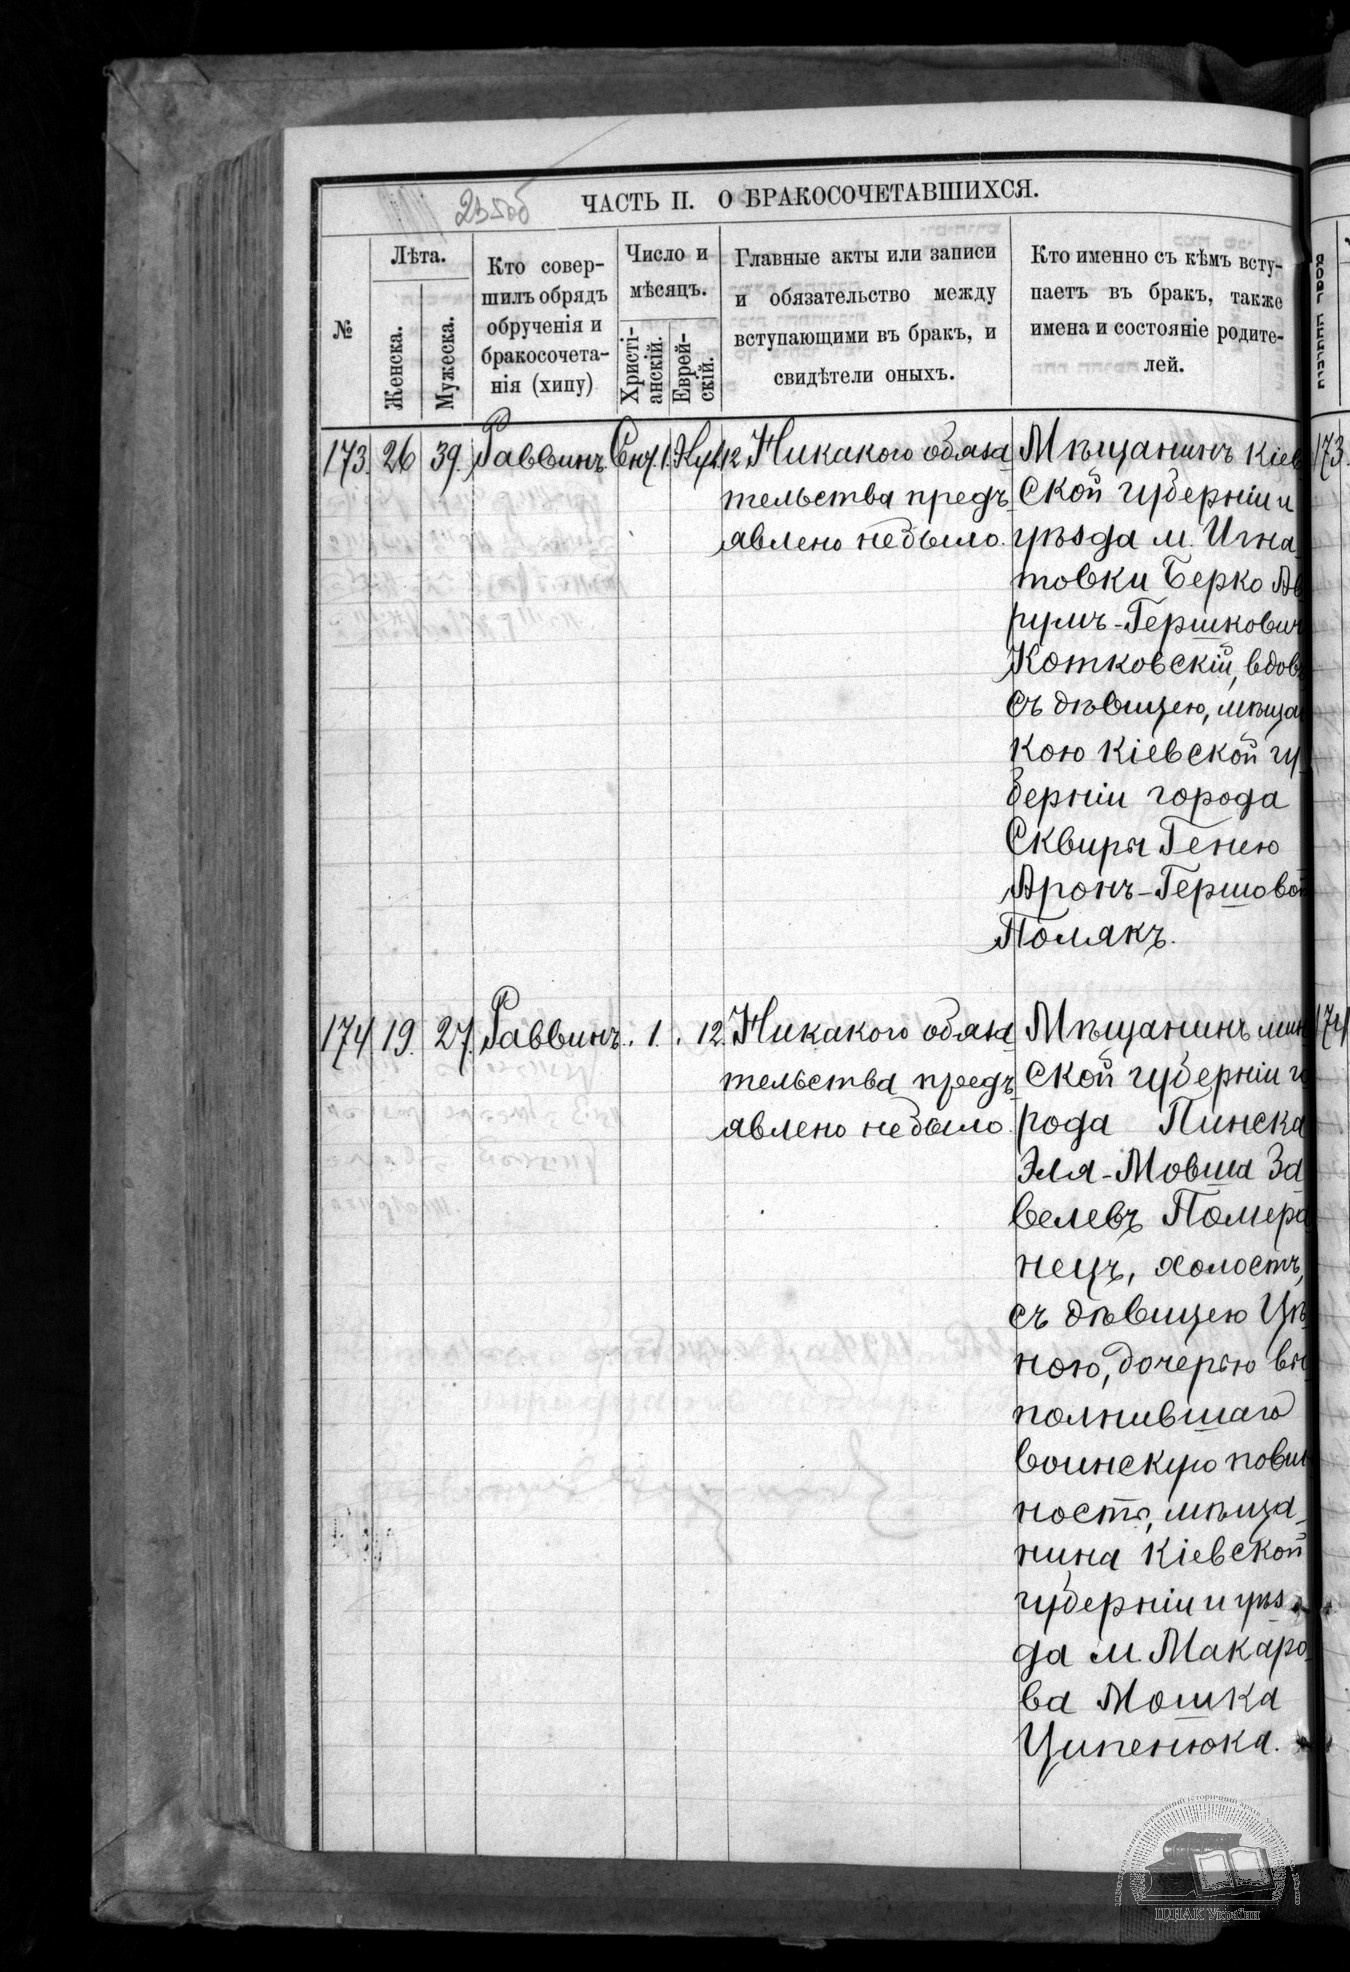 235об
ЧАСТЬ II. О БРАКОСОЧЕТАВШИХСЯ.
№
Лѣта.
Женска.
Мужеска.
Кто совер-
шилъ обрядъ
обрученія и
бракосочета-
нія (хипу)
Число и
мѣсяцъ.
Христі-
анскій.
Еврей-
скій.
Главные акты или записи
и обязательство между
вступающими въ бракъ, и
свидѣтели оныхъ.
Кто именно съ кѣмъ всту-
паетъ въ бракъ, также
имена и состояніе родите-
лей.
173. 26 39. Раввинъ. 1. 12 Никакого обяза
тельства предъ
явлено небыло.
Мѣщанинъ Кіев
ской губерніи и
уѣзда м. Игна
товки Берко Ав
румъ-Гершкович
Котковскій, вдов
съ дѣвицею, мѣщан
кою Кіевской гу
берніи города
Сквиры Генею
Аронъ-Гершовой
Полякъ.
173.
174 19. 27. Раввинъ. 1. 12. Никакого обяза
тельства предъ
явлено небыло.
Мѣщанинъ мин
ской губерніи го
рода Пинска
Эля-Мовша За
велевъ Помера
нецъ, холостъ,
съ дѣвицею Цѣ
ною, дочерью вы
полнившаго
воинскую повин
ность, мѣща
нина Кіевской
губерніи и уѣз
да м. Макаро
ва Мошка
Ципенюка.
174
ЦДІАК України